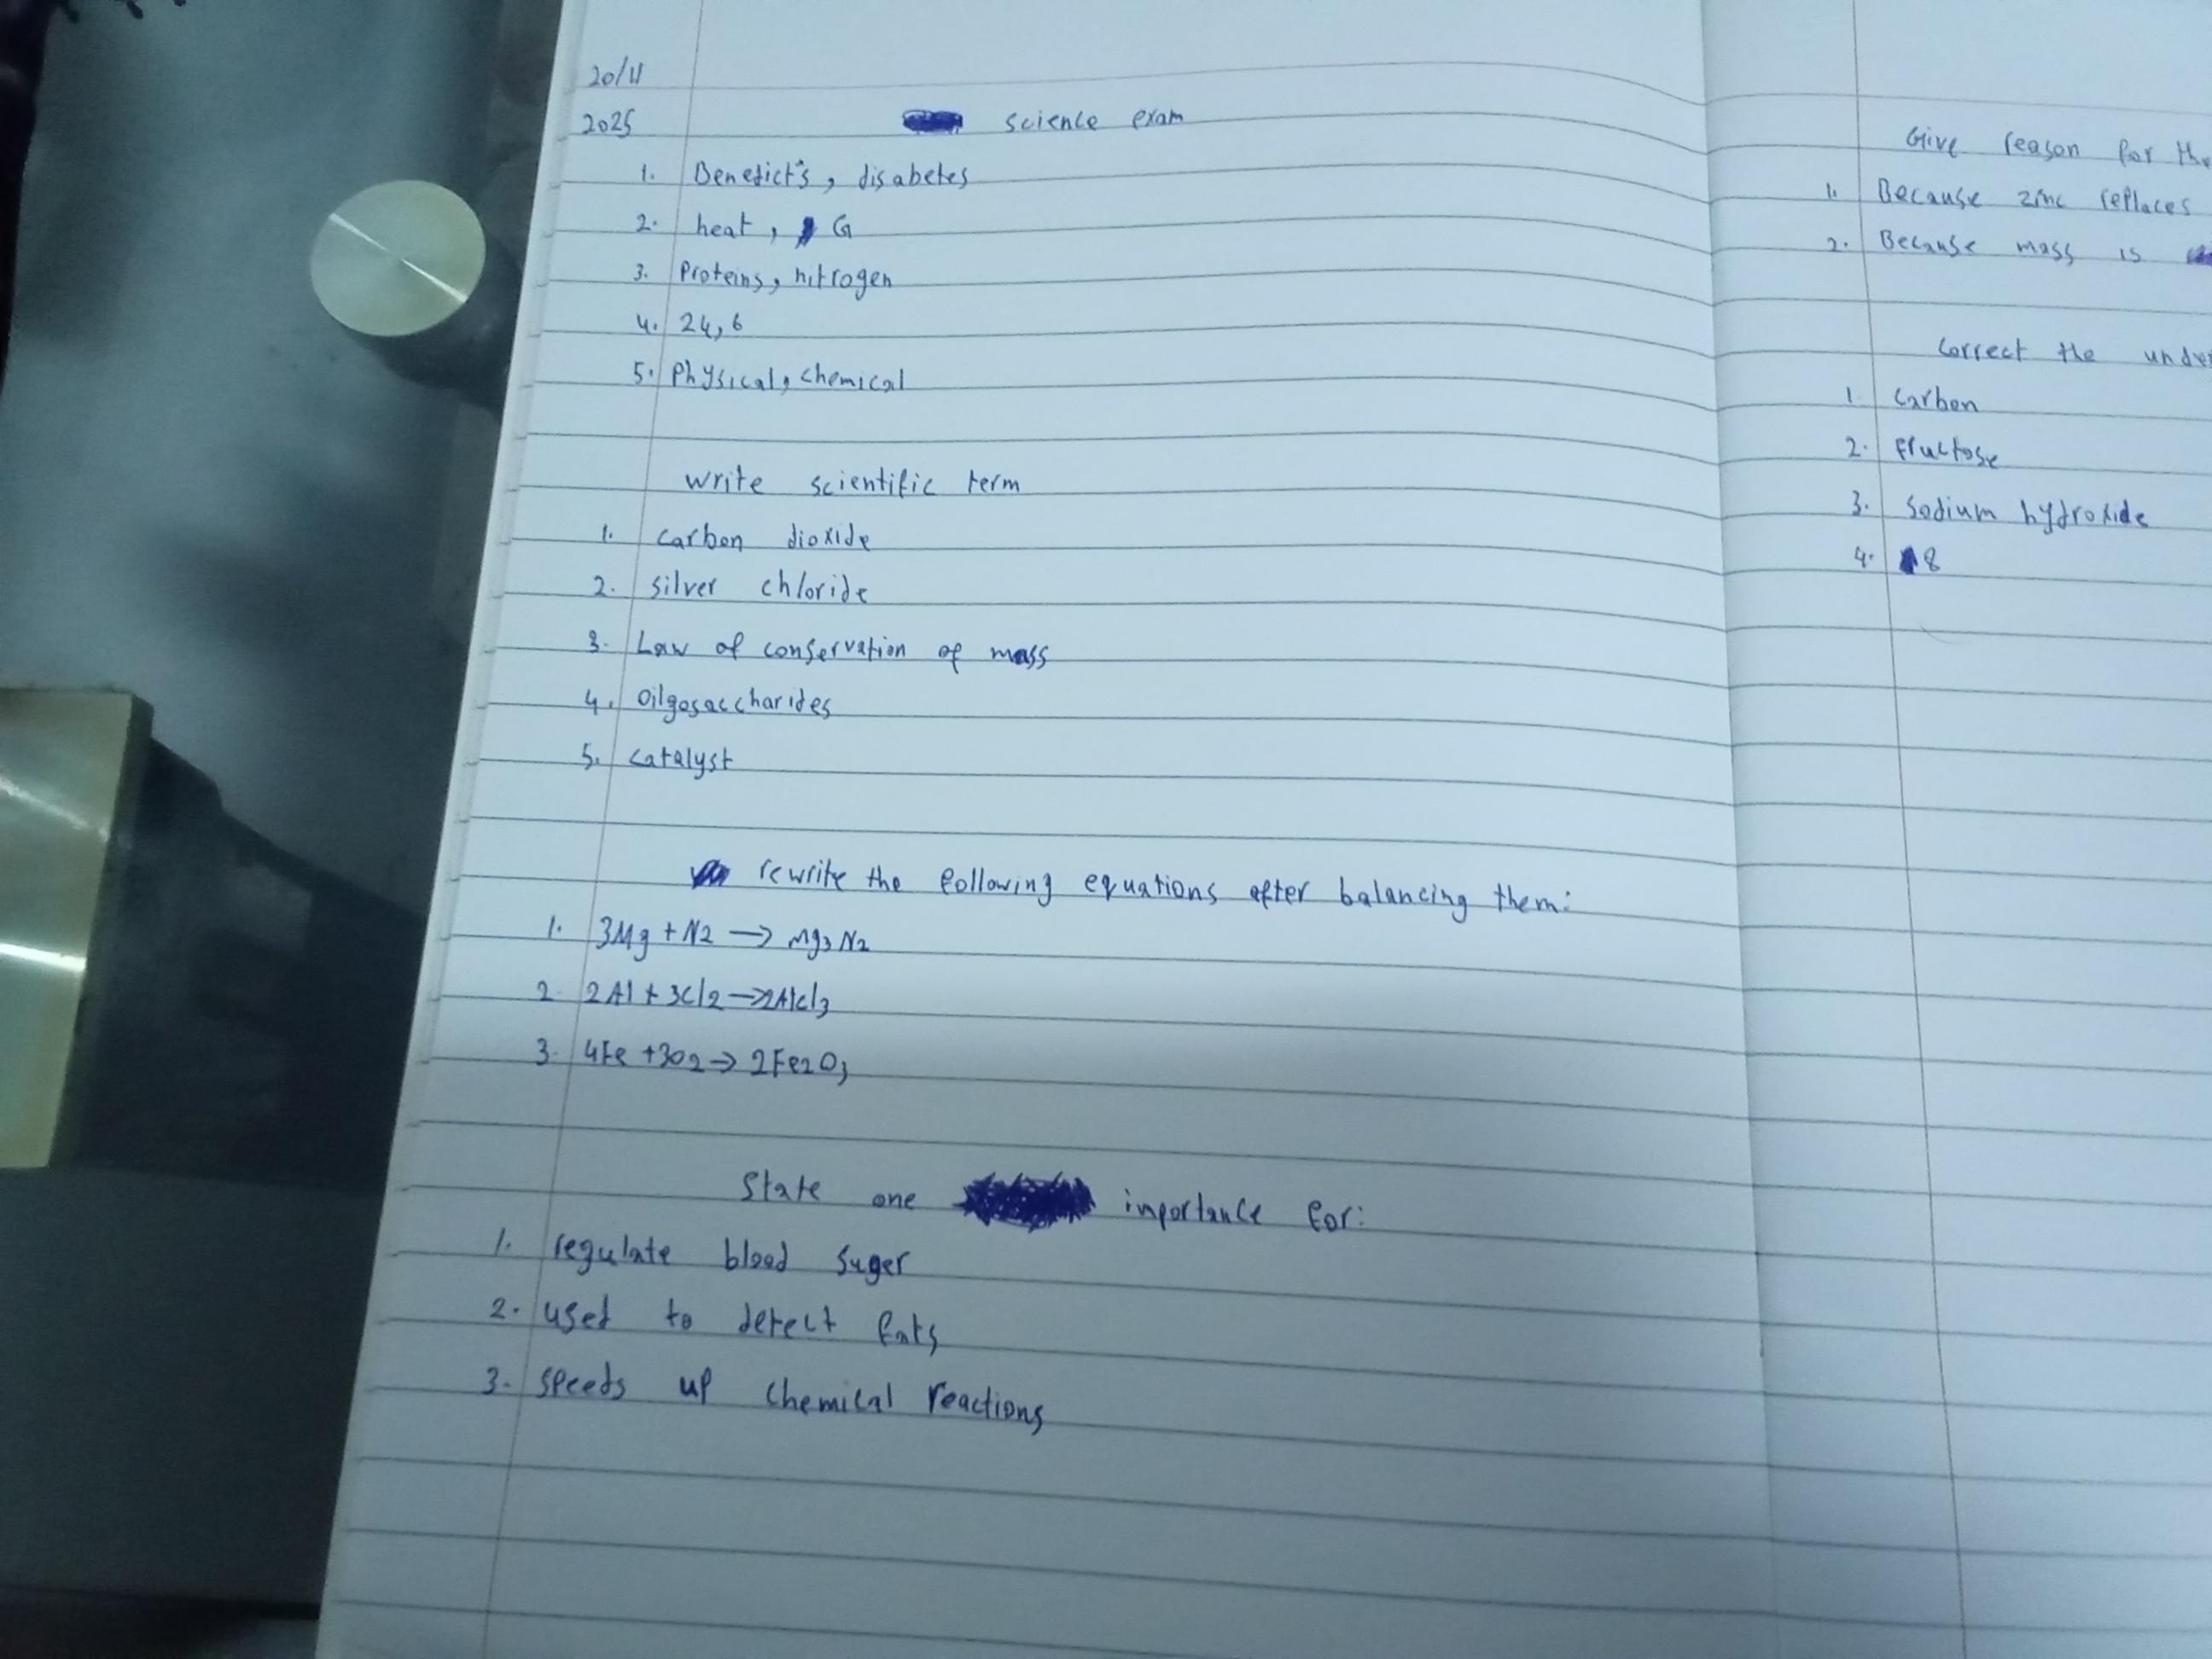 20/11
2025
science exam
1. Benedict's, disabetes
2. heat, G
3. Proteins, nitrogen
4. 24, 6
5. Physical, chemical
write scientific term
1. carbon dioxide
2. silver chloride
3. Law of conservation of mass
4. Oilgosaccharides
5. catalyst
rewrite the following equations after balancing them:
1. 3Mg + N2 → Mg3 N2
2. 2Al + 3Cl2 → 2AlCl3
3. 4Fe + 3O2 → 2Fe2O3
State one importance for:
1. regulate blood suger
2. used to detect fats
3. speeds up chemical reactions
Give reason for the
1. Because zinc replaces
2. Because mass is
Correct the under
1. Carbon
2. Fructose
3. Sodium hydroxide
4. 8